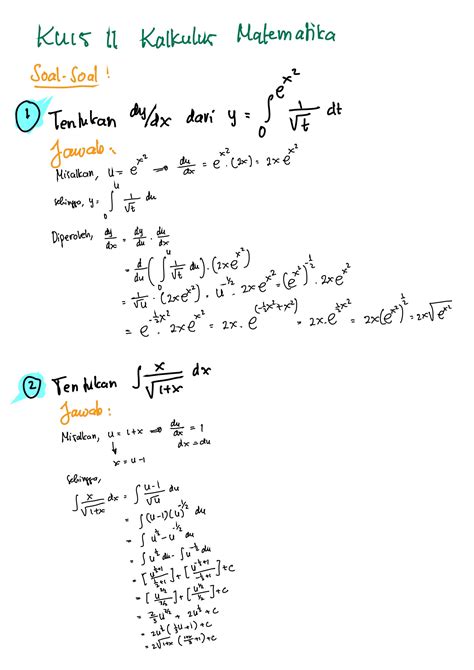 Kuis II Kalkulus Matematika
Soal-Soal!
1 Tentukan dy/dx dari y = ∫₀^(e^(x²)) 1/√t dt
Jawab:
Misalkan, u = e^(x²) ⟹ du/dx = e^(x²) · (2x) = 2x e^(x²)
sehingga, y = ∫₀^u 1/√t du
Diperoleh, dy/dx = dy/du · du/dx
= d/du (∫₀^u 1/√t du) · (2x e^(x²))
= 1/√u · (2x e^(x²)) = u^(-1/2) · 2x e^(x²) = (e^(x²))^(-1/2) · 2x e^(x²)
= e^(-1/2 x²) · 2x e^(x²) = 2x · e^(-1/2 x² + x²) = 2x · e^(1/2 x²) = 2x (e^(x²))^(1/2) = 2x √(e^(x²))
2 Tentukan ∫ x/√(1+x) dx
Jawab:
Misalkan, u = 1+x ⟹ du/dx = 1
↓ dx = du
x = u-1
Sehingga,
∫ x/√(1+x) dx = ∫ (u-1)/√u du
= ∫ (u-1)(u)^(-1/2) du
= ∫ u^(1/2) - u^(-1/2) du
= ∫ u^(1/2) du - ∫ u^(-1/2) du
= [u^(1/2+1) / (1/2+1)] + [u^(-1/2+1) / (-1/2+1)] + c
= [u^(3/2) / (3/2)] + [u^(1/2) / (1/2)] + c
= 2/3 u^(3/2) + 2u^(1/2) + c
= 2u^(1/2) (1/3 u + 1) + c